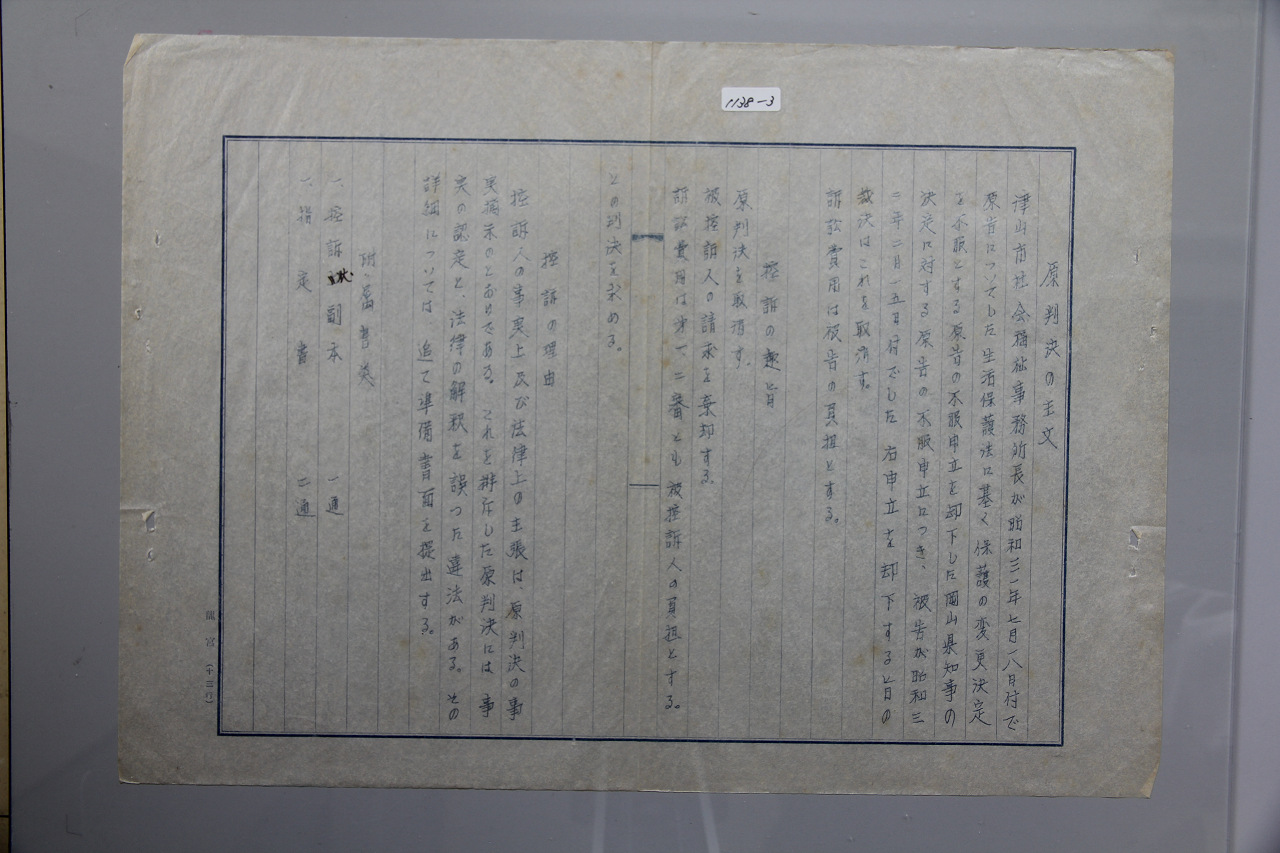 1138-3
原判決の主文
津山市社会福祉事務所長が昭和三一年七月一八日付で
原告についてした生活保護法に基く保護の変更決定
を不服とする原告の不服申立を却下した岡山県知事の
決定に対する原告の不服申立につき、被告が昭和三
二年二月一五日付でした右申立を却下する旨の
裁決はこれを取消す。
訴訟費用は被告の負担とする。
控訴の趣旨
原判決を取消す。
被控訴人の請求を棄却する。
訴訟費用は第一、二審とも被控訴人の負担とする。
との判決を求める。
控訴の理由
控訴人の事実上及び法律上の主張は、原判決の事
実摘示のとおりである。これを排斥した原判決には事
実の認定と、法律の解釈を誤つた違法がある。その
詳細については、追て準備書面を提出する。
附属書類
一、控訴状副本 一通
一、指定書 二通
龍宮(十三行)